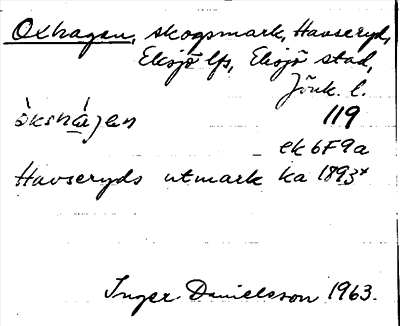 Oxhagen, skogsmark, Havseryd,
Eksjö lfs, Eksjö stad,
Jönk. l.
òkshá̲gen 119
ek 6F9a
Havseryds utmark ka 1893*
Inger Danielsson 1963.